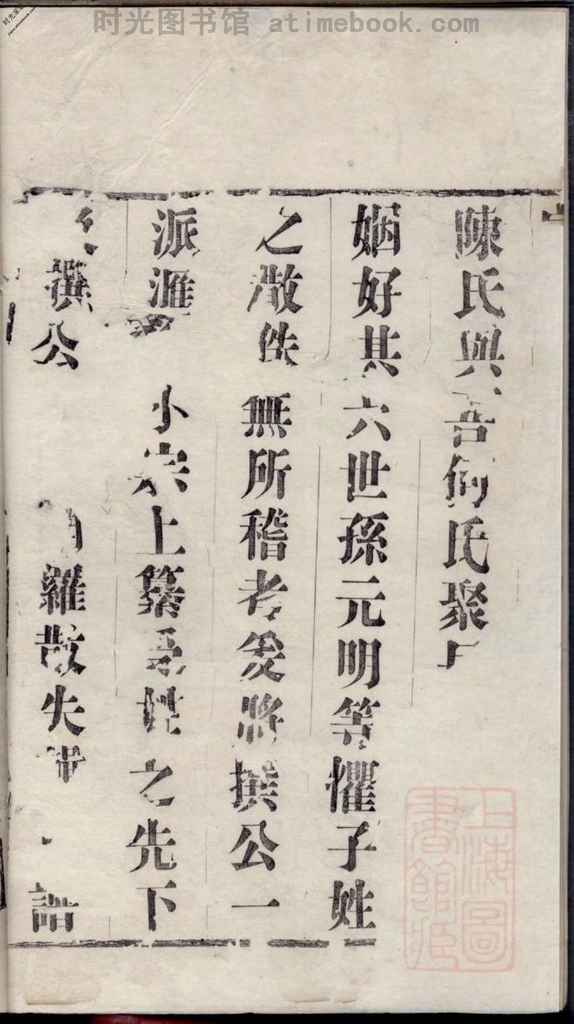 时光图书馆 atimebook.com
陳氏與吾何氏聚
婣好其六世孫元明等懼子姓
之散佚無所稽考爰將撰公一
派滙 小宗上纂受姓之先下
撰公 羅散失 譜
上海圖書館藏